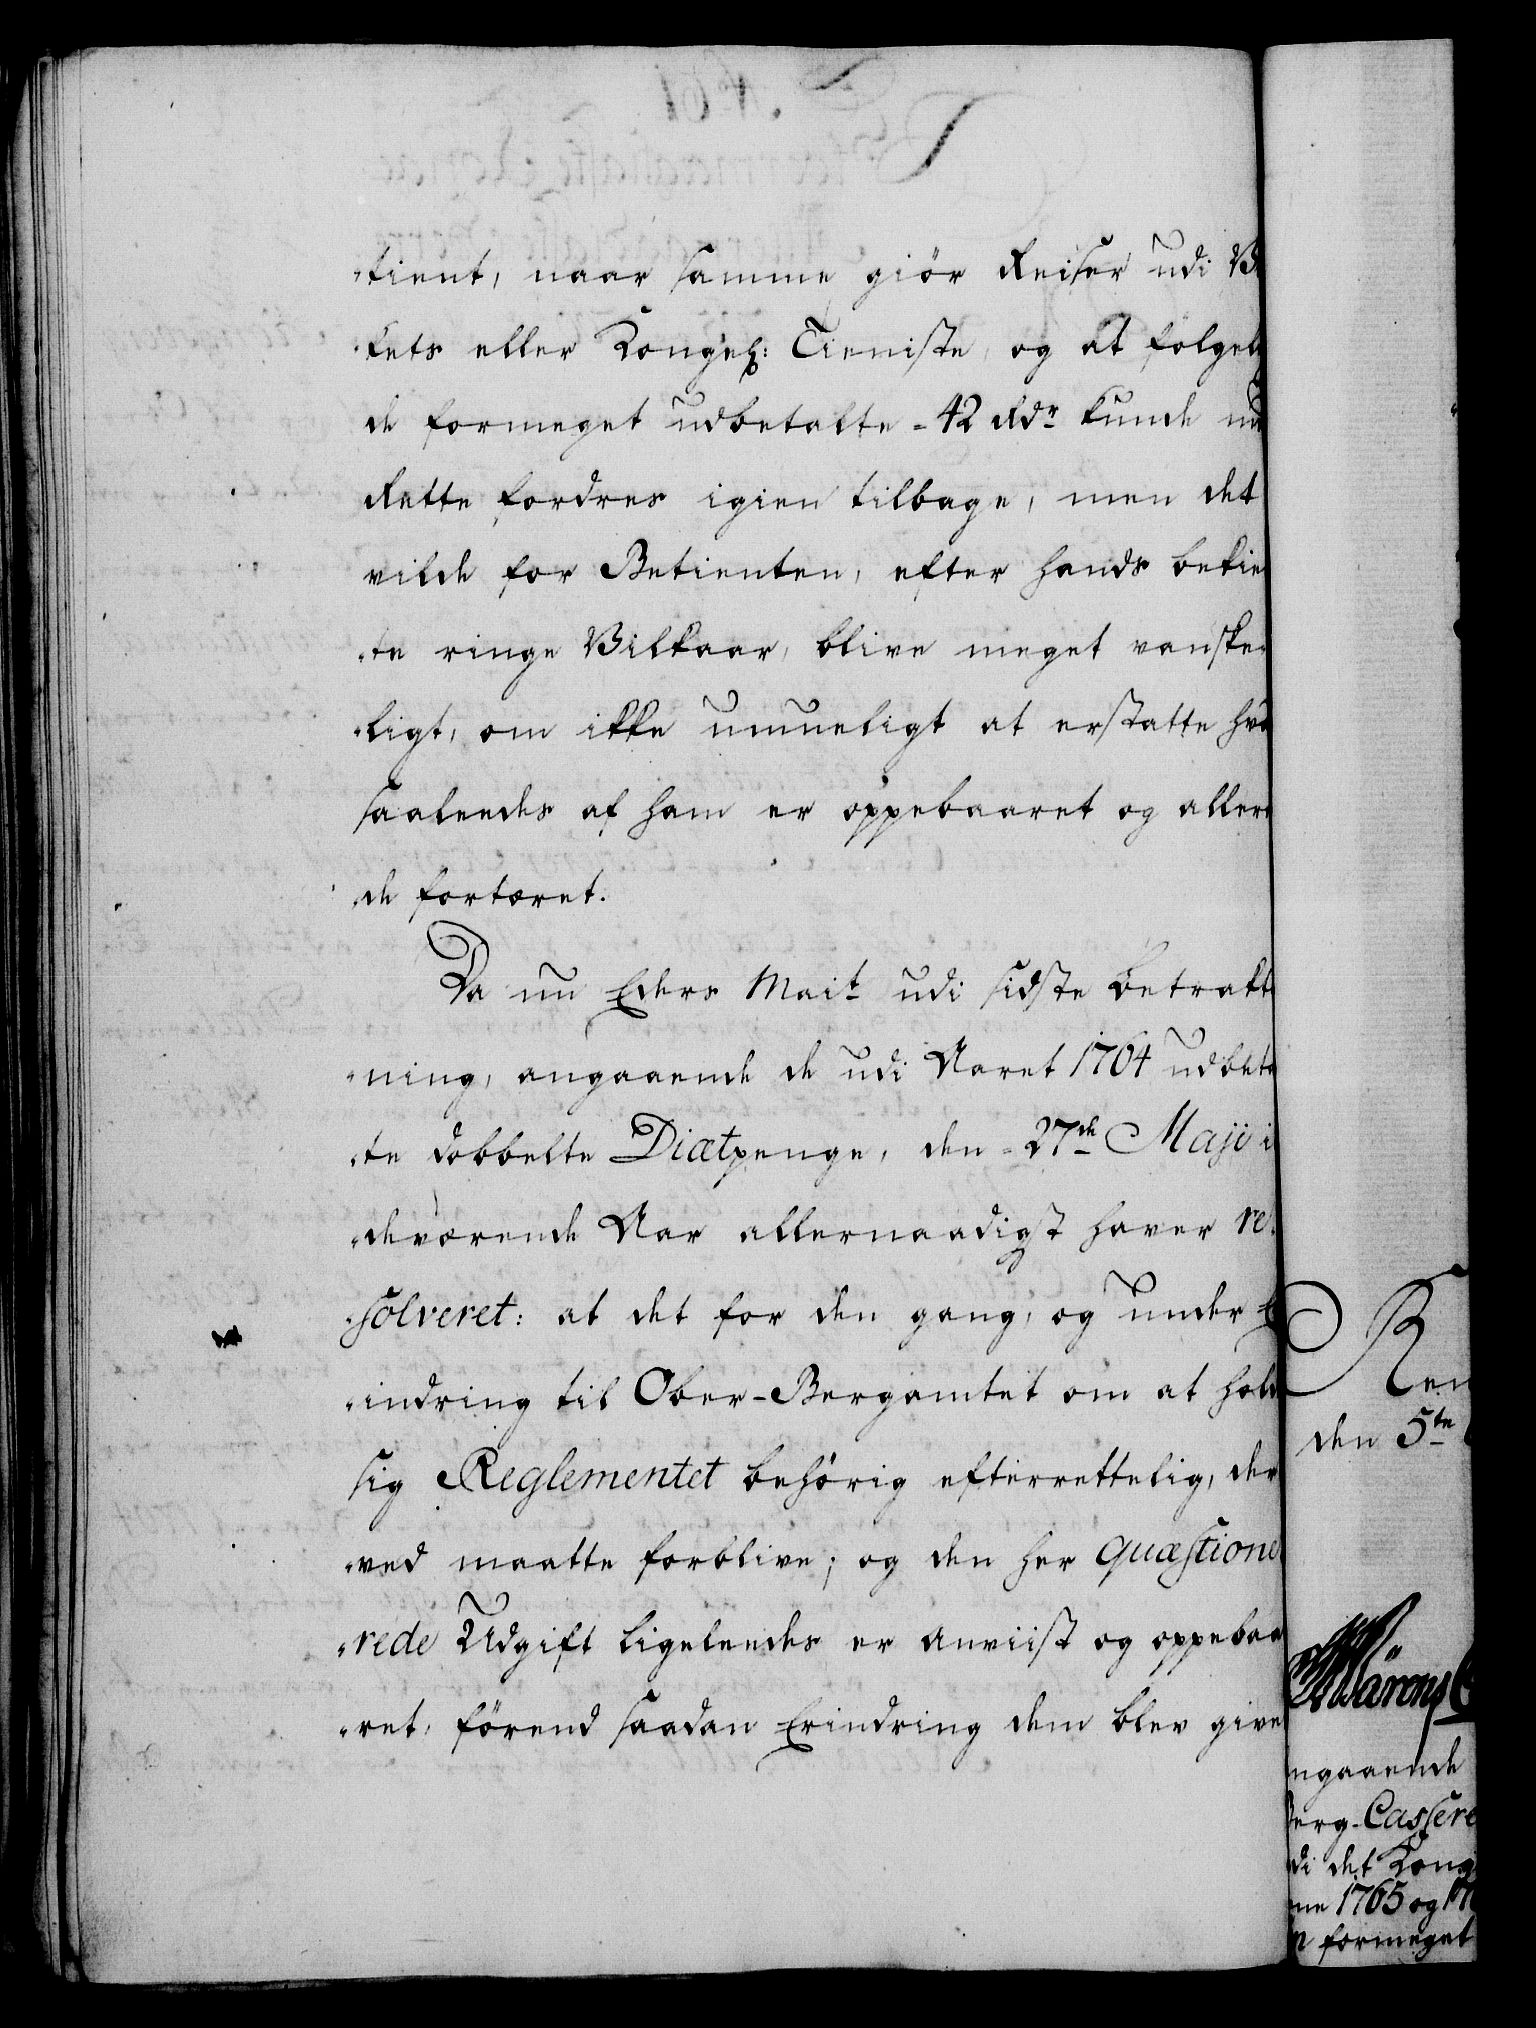 -tient, naar samme giör Reiser udi
-kets eller Kongel: Tieniste, og at fölgel
de formeget udbetalte - 42 Rdr kunde
Rette fordres igien tilbage, men det
vilde for Betienten, efter hands bekie
-te ringe Vilkaar, blive meget vanske-
-ligt, om ikke umueligt at erstatte hva
saaledes af ham er oppebaaret og allere
-de fortæret.
Da nu Eders Mait udi sidste Betragt
-ning, angaaende de udi Aaret 1764 udbeta
-te dobbelte Diætpenge, den - 27de Maji i
-deværende Aar allernaadigst haver re-
-solveret: at det for den gang, og under E
-indring til Ober-Bergamtet om at hold
sig Reglementet behörig efterrettelig, der
-ved maatte forblive; og den her quæstione
-rede Udgift ligeledes er anviist og oppebaa
-ret, förend saadan Erindring dem blev give
Ren
den 5te
ngaaende
Berg-Cassere
di det Kong
ne 1765 og 17
formeget